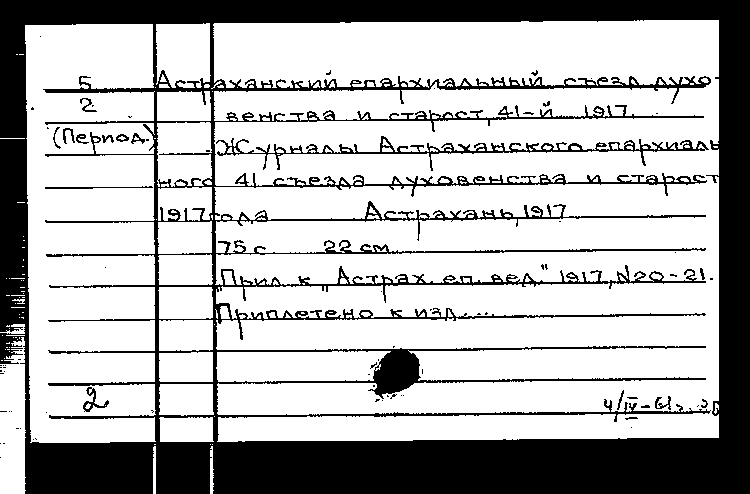 5 Астраханский епархиальный съезд духо-
2 венства и старост, 41-й 1917.
(Период.) Журналы Астраханского епархиаль
ного 41 съезда духовенства и старост
1917 года Астрахань, 1917
75 с 22 см
"Прил. к "Астрах. еп. вед." 1917, N20-21.
Приплетено к изд....
2 4/IV-61г.